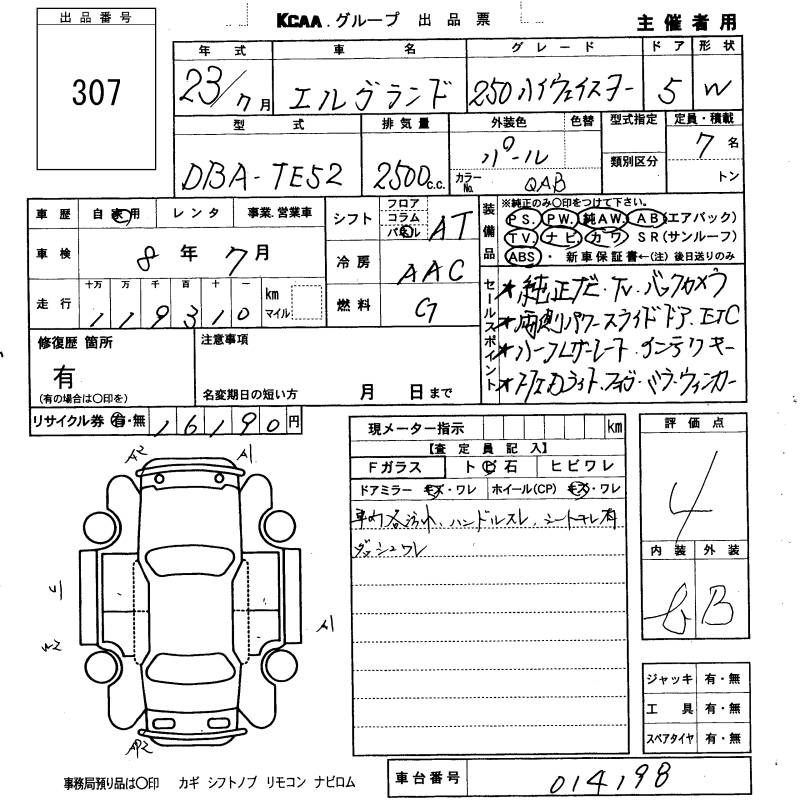 出品番号
307
KCAA.グループ 出品票
主催者用
年式 車名 グレード ドア 形状
23/7月 エルグランド 250ハイウェイスター 5 W
型式 排気量 外装色 色替 型式指定 定員・積載
DBA-TE52 2500c.c. パール 7名
カラーNo. QAB 類別区分 トン
車歴 自家用 レンタ 事業.営業車
車検 8年7月
走行 十万 万 千 百 十 一
119310 km マイル
シフト フロア コラム パネル AT
冷房 AAC
燃料 G
装備品
※純正のみ〇印をつけて下さい。
PS. PW. 純AW. AB(エアバック)
TV. ナビ. カワ SR(サンルーフ)
ABS・新車保証書←(注)後日送りのみ
セールスポイント
★純正ナビ・TV.バックカメラ
★両側パワースライドドア.ETC
★ハーフレザーシート.インテリキー
修復歴 箇所
有
(有の場合は〇印を)
注意事項
名変期日の短い方 月 日まで
リサイクル券 有・無 16190円
現メーター指示 km
【査定員記入】
Fガラス トビ石 ヒビワレ
ドアミラー キズ・ワレ ホイール(CP) キズ・ワレ
ハンドルスレ、シート
ダッシュワレ
評価点
4
内装 外装
B
A2 A1
A1
W2
AP2
ジャッキ 有・無
工具 有・無
スペアタイヤ 有・無
事務局預り品は〇印 カギ シフトノブ リモコン ナビロム
車台番号 014198